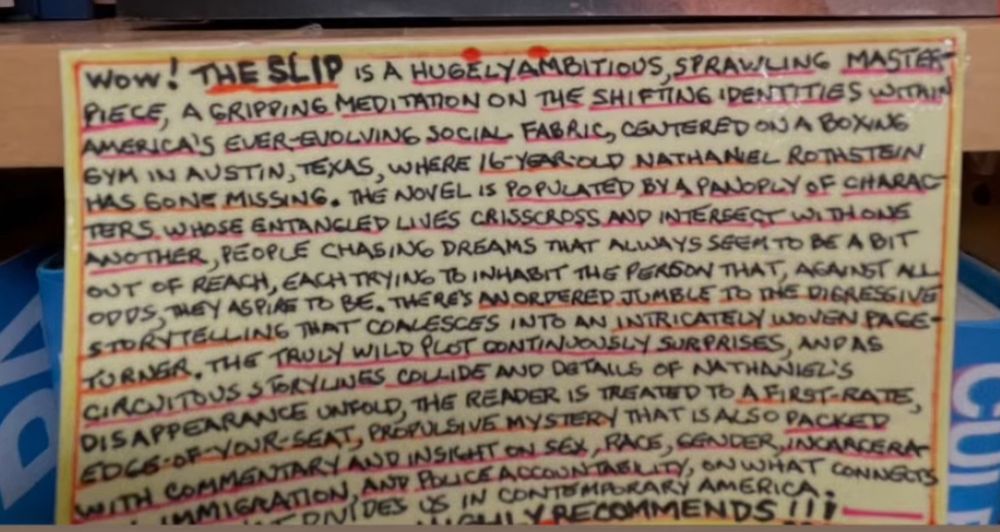 WOW! THE SLIP IS A HUGELY AMBITIOUS, SPRAWLING MASTER-
PIECE, A GRIPPING MEDITATION ON THE SHIFTING IDENTITIES WITHIN
AMERICA'S EVER-EVOLVING SOCIAL FABRIC, CENTERED ON A BOXING
GYM IN AUSTIN, TEXAS, WHERE 16-YEAR-OLD NATHANIEL ROTHSTEIN
HAS GONE MISSING. THE NOVEL IS POPULATED BY A PANOPLY OF CHARAC-
TERS WHOSE ENTANGLED LIVES CRISSCROSS AND INTERSECT WITH ONE
ANOTHER, PEOPLE CHASING DREAMS THAT ALWAYS SEEM TO BE A BIT
OUT OF REACH, EACH TRYING TO INHABIT THE PERSON THAT, AGAINST ALL
ODDS, THEY ASPIRE TO BE. THERE'S AN ORDERED JUMBLE TO THE DIGRESSIVE
STORYTELLING THAT COALESCES INTO AN INTRICATELY WOVEN PAGE-
TURNER. THE TRULY WILD PLOT CONTINUOUSLY SURPRISES, AND AS
CIRCUITOUS STORYLINES COLLIDE AND DETAILS OF NATHANIEL'S
DISAPPEARANCE UNFOLD, THE READER IS TREATED TO A FIRST-RATE,
EDGE-OF-YOUR-SEAT, PROPULSIVE MYSTERY THAT IS ALSO PACKED
WITH COMMENTARY AND INSIGHT ON SEX, RACE, GENDER, INCARCERA-
IMMIGRATION, AND POLICE ACCOUNTABILITY, ON WHAT CONNECTS
DIVIDES US IN CONTEMPORARY AMERICA.
HIGHLY RECOMMENDS!!!